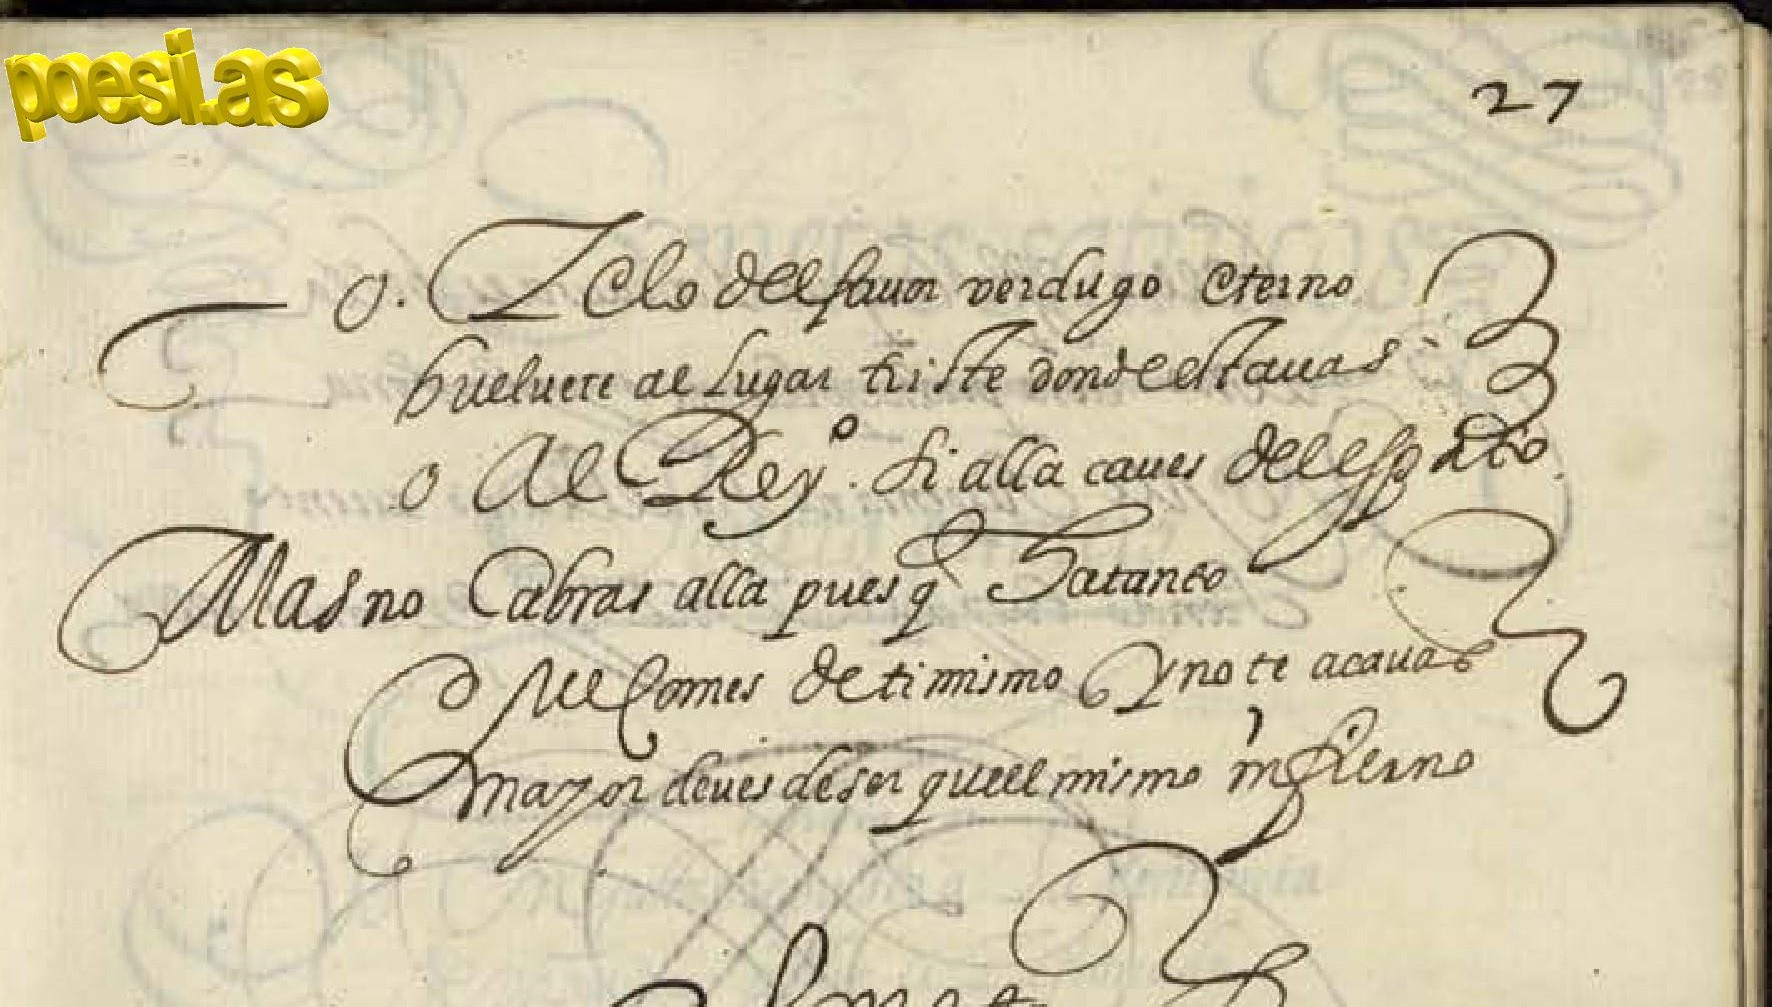 poesi.as
27
o. Zelo del fauor verdugo eterno
bueluete al lugar triste donde estauas
o Al Reyº. si alla caues del espāto
Mas no Cabras alla pues q̄ Satanto
que Comes de ti mismo y no te acauas
mayor deues de ser que el mismo infierno